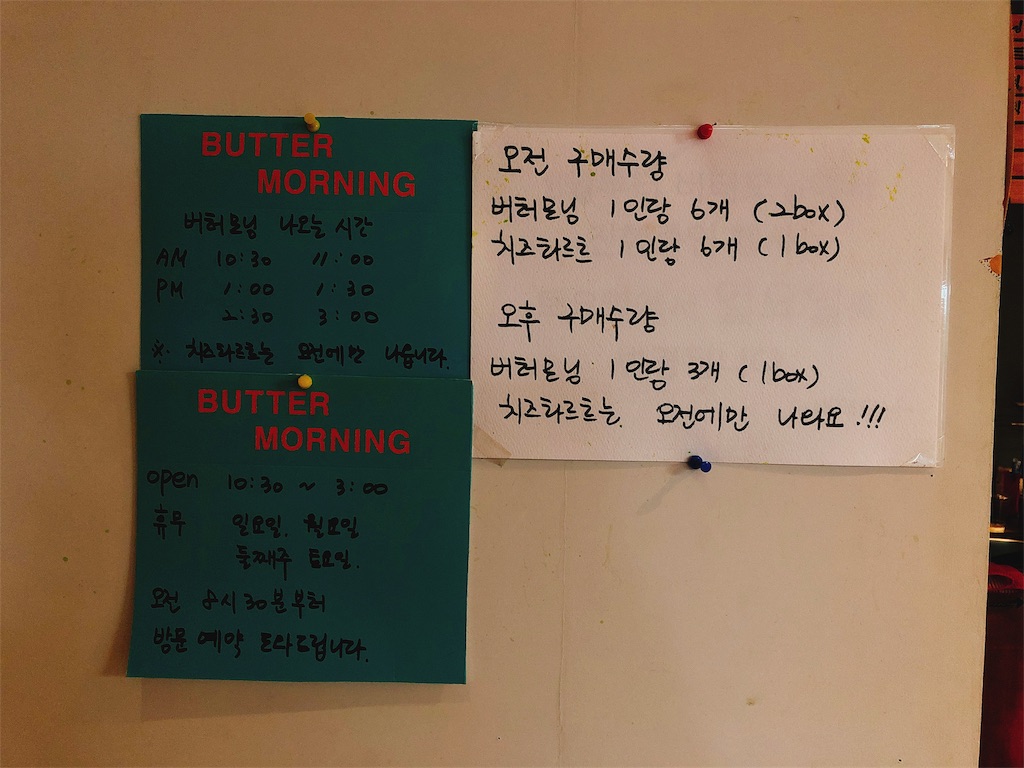 BUTTER
MORNING
버터모닝 나오는 시간
AM 10:30 11:00
PM 1:00 1:30
2:30 3:00
※ 치즈타르트는 오전에만 나옵니다.
BUTTER
MORNING
open 10:30 ~ 3:00
휴무 일요일, 월요일
둘째주 토요일.
오전 8시 30분부터
방문 예약 도와드립니다.
오전 구매수량
버터모닝 1인당 6개 (2box)
치즈타르트 1인당 6개 (1box)
오후 구매수량
버터모닝 1인당 3개 (1box)
치즈타르트는 오전에만 나와요!!!